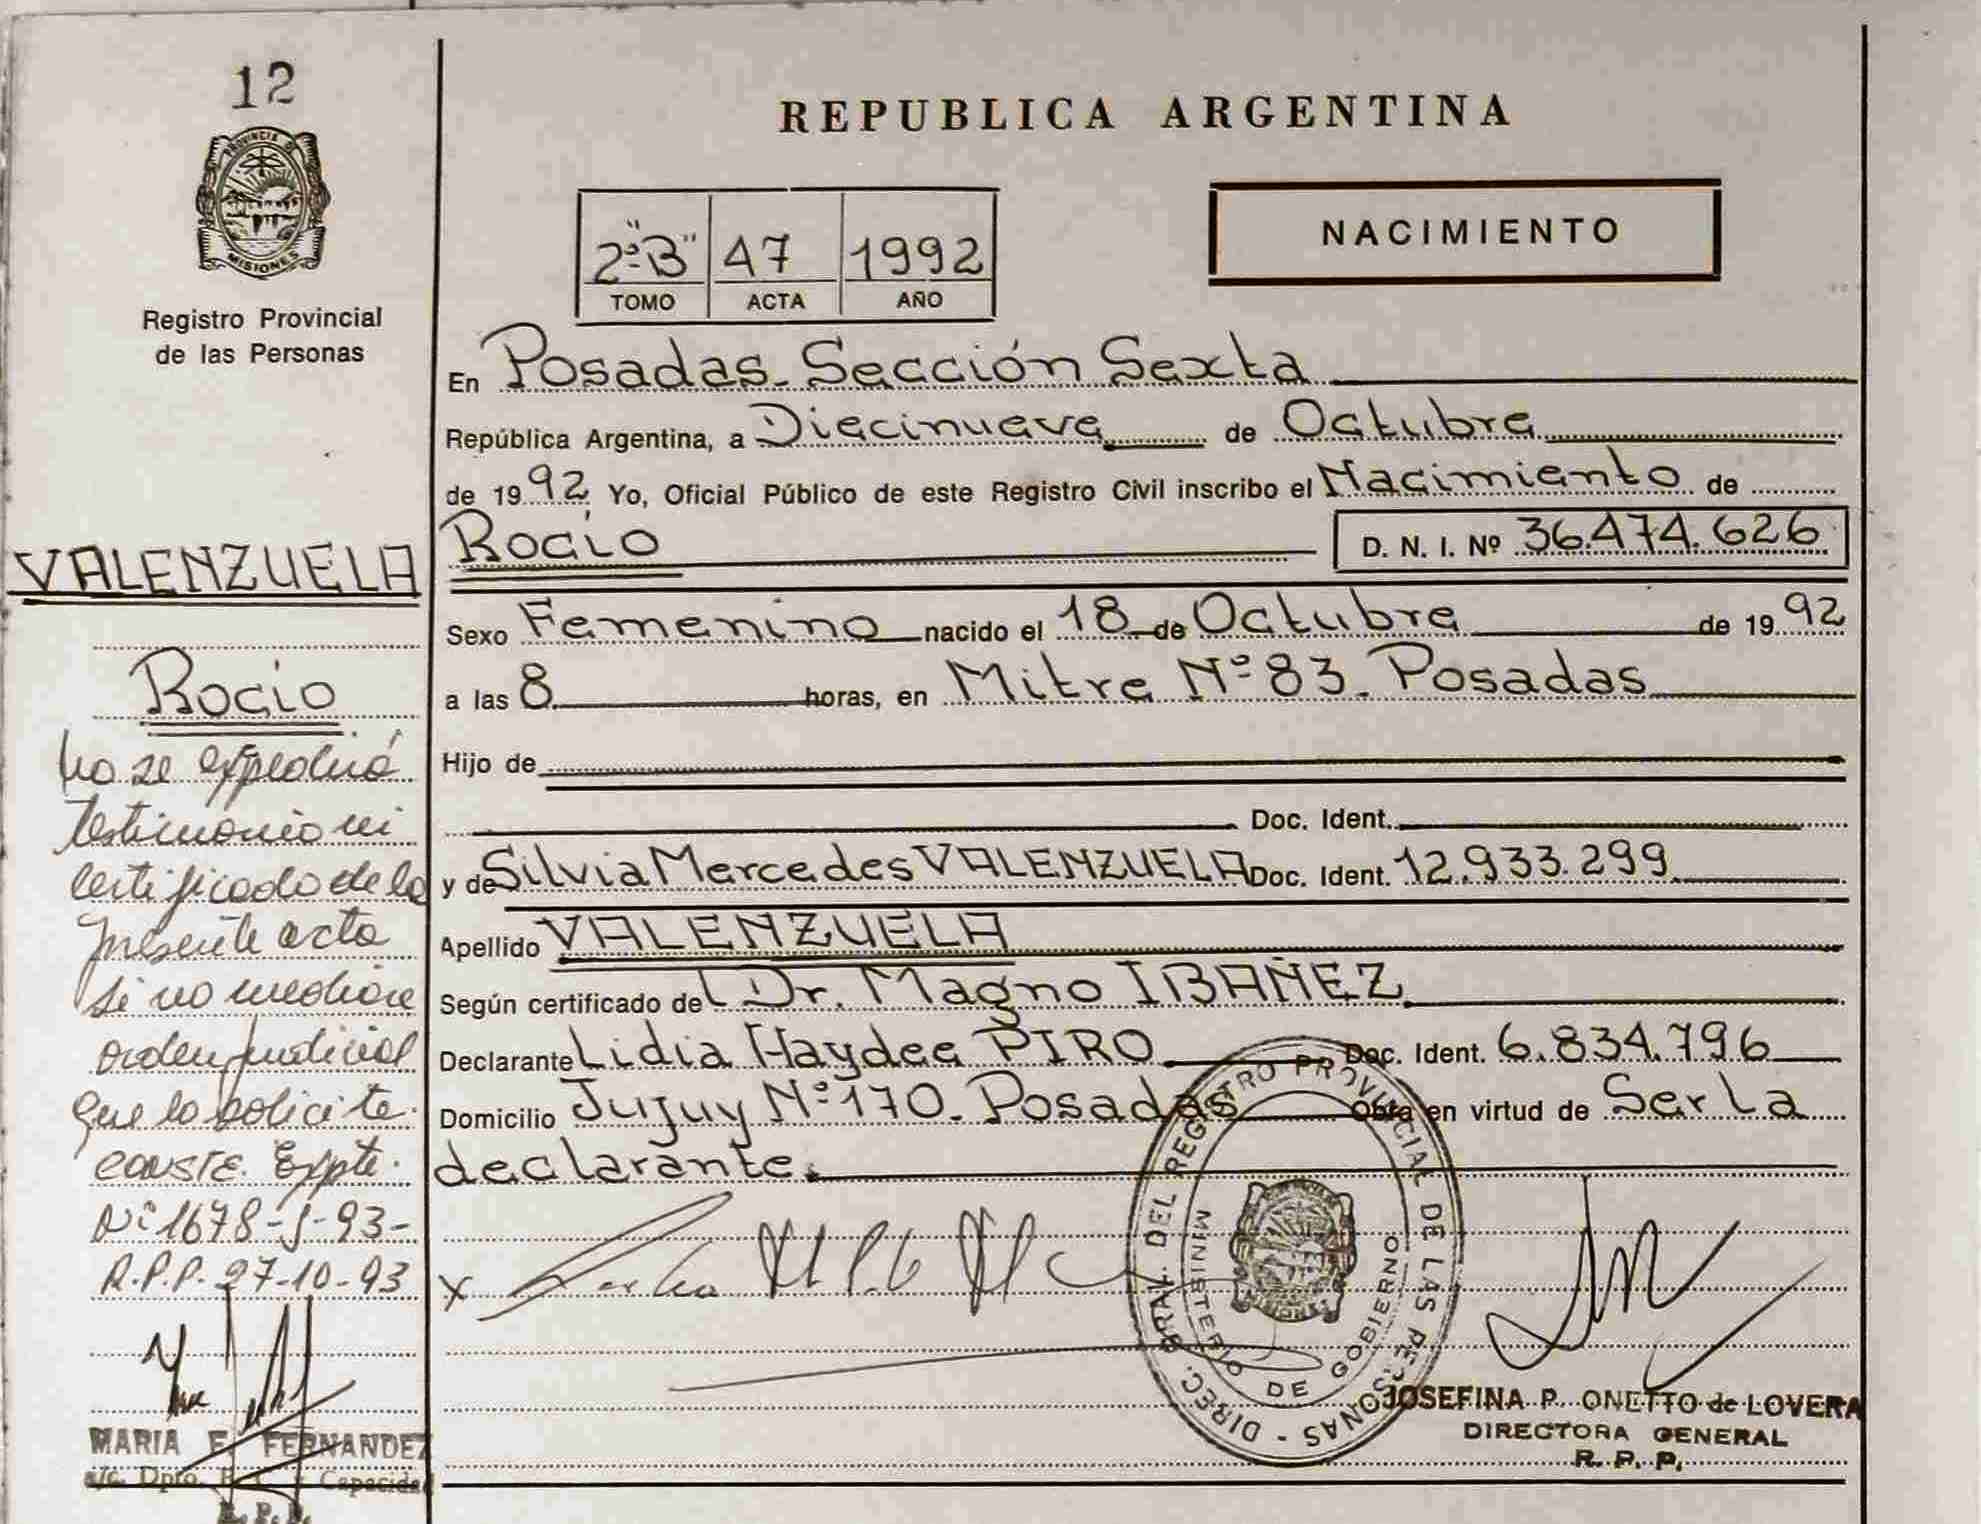 12
PROVINCIA DE
MISIONES
Registro Provincial
de las Personas
VALENZUELA
Rocio
No se expedirá
testimonio ni
certificado de la
presente acta
si no mediare
orden judicial
que lo solicite.
CONSTE. Expte.
Nº 1678-J-93-
R.P.P. 27-10-93
MARIA E. FERNANDEZ
a/c. Dpto. Capacidad
R. P. P.
REPUBLICA ARGENTINA
2º "B" 47 1992
TOMO ACTA AÑO
NACIMIENTO
En Posadas. Sección Sexta
República Argentina, a Diecinueve de Octubre
de 1992. Yo, Oficial Público de este Registro Civil inscribo el Nacimiento de
Rocio D. N. I. Nº 36.474.626
Sexo Femenino nacido el 18 de Octubre de 1992
a las 8 horas, en Mitre Nº 83. Posadas
Hijo de
Doc. Ident.
y de Silvia Mercedes VALENZUELA Doc. Ident. 12.933.299
Apellido VALENZUELA
Según certificado del Dr. Magno IBAÑEZ
Declarante Lidia Haydee PIRO Doc. Ident. 6.834.796
Domicilio Jujuy Nº 170. Posadas Obra en virtud de Ser la
declarante.
x
DIREC. GRAL. DEL REGISTRO PROVINCIAL DE LAS PERSONAS -
MINISTERIO DE GOBIERNO
JOSEFINA P. ONETTO de LOVERA
DIRECTORA GENERAL
R. P. P.